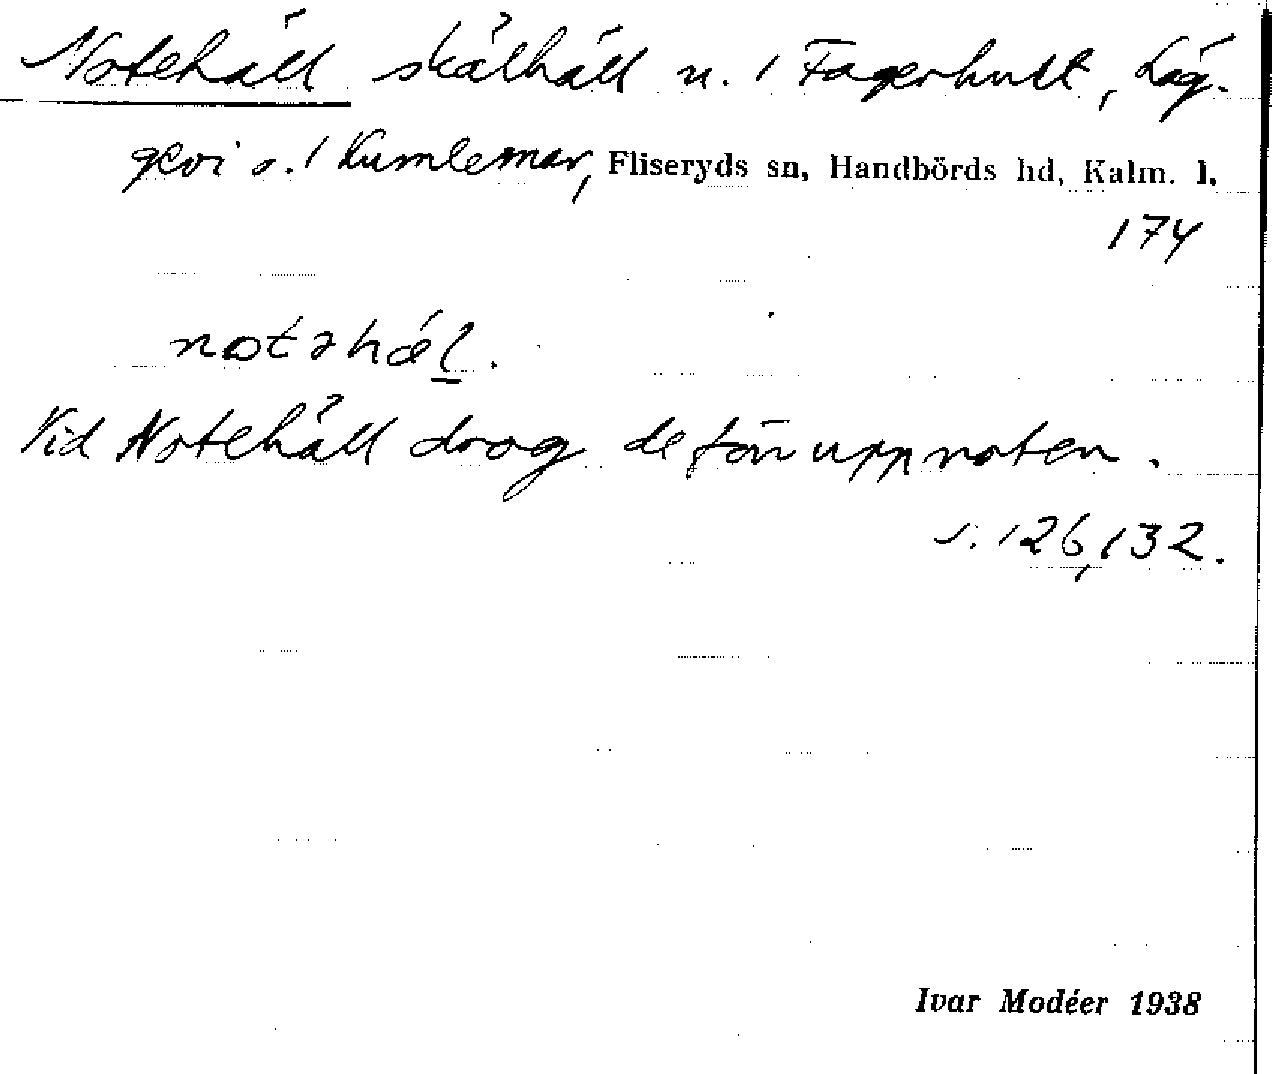 Notehäll skälhäll n. / Fagerhult, Läg-
gevi s. / Kumlemar, Fliseryds sn, Handbörds hd, Kalm. l.
174
notəhæl.
Vid Notehäll drog de förr upp noten.
s. 126, 132.
Ivar Modéer 1938